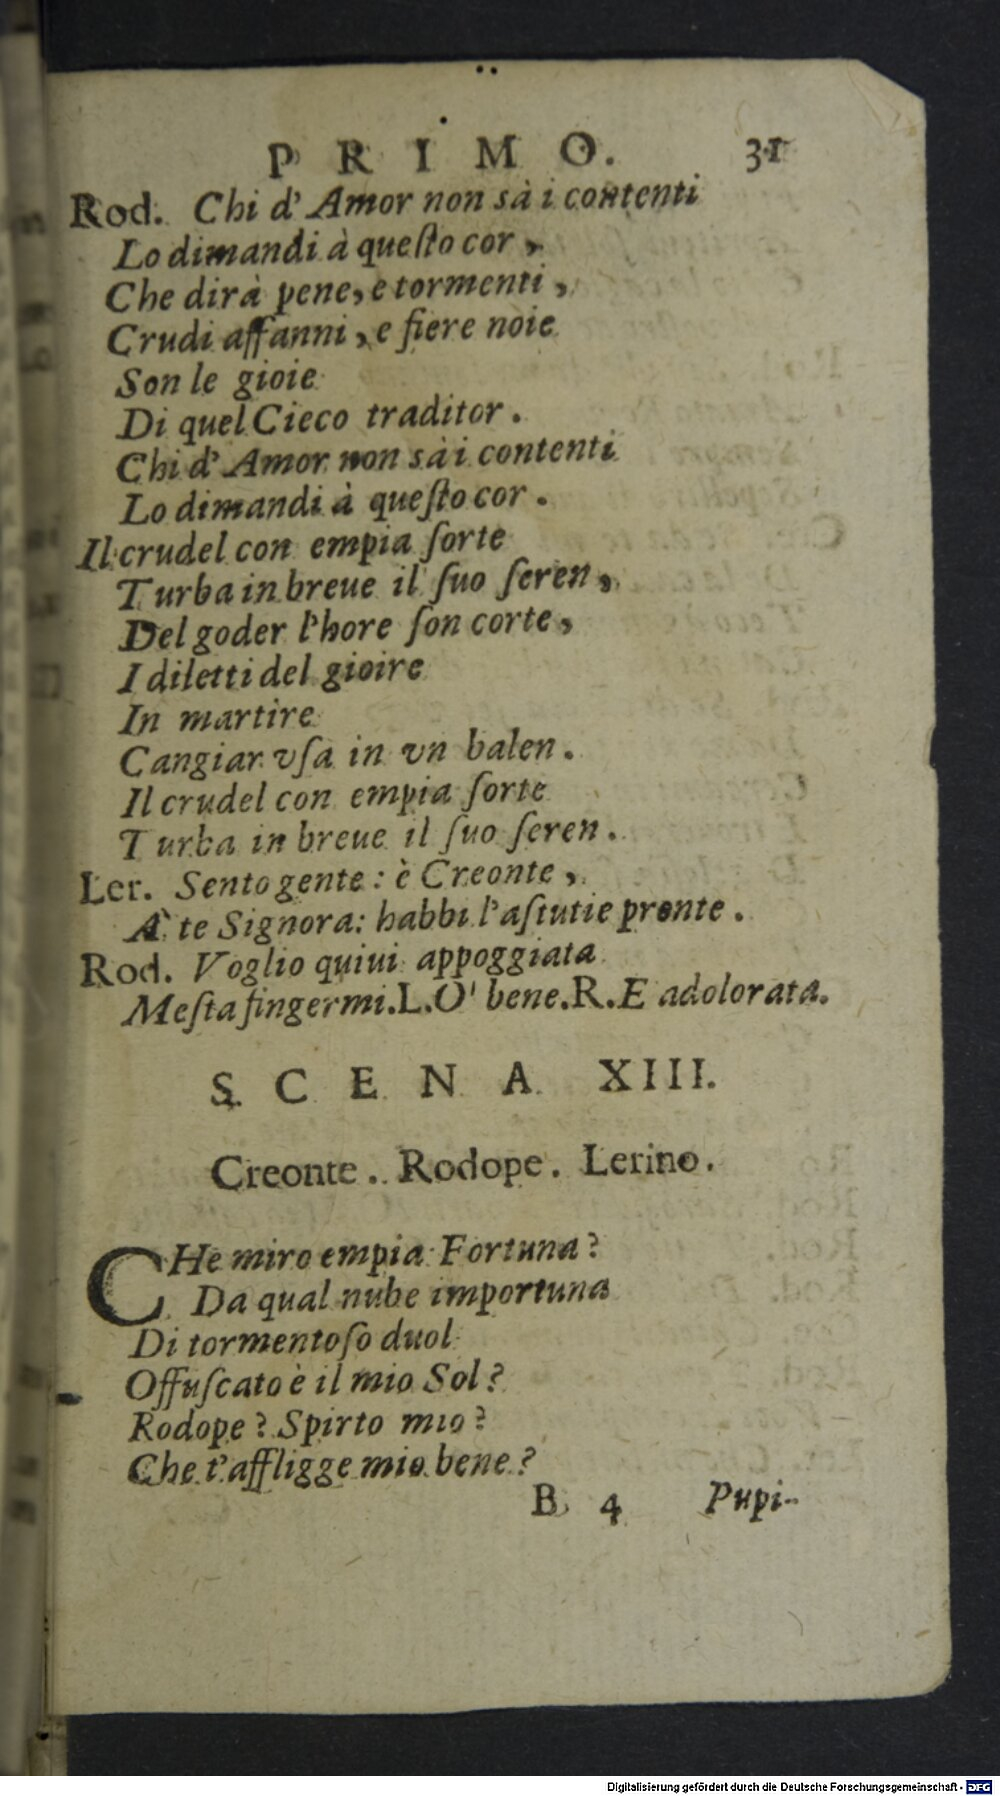 PRIMO. 31
Rod. Chi d'Amor non sà i contenti
Lo dimandi à queſto cor,
Che dirà pene, e tormenti,
Crudi affanni, e fiere noie
Son le gioie
Di quel Cieco traditor.
Chi d'Amor non sà i contenti
Lo dimandi à queſto cor.
Il crudel con empia ſorte
Turba in breue il ſuo ſeren,
Del goder l'hore ſon corte,
I diletti del gioire
In martire
Cangiar vſa in vn balen.
Il crudel con empia ſorte
Turba in breue il ſuo ſeren.
Ler. Sento gente: è Creonte,
A' te Signora: habbi l'aſtutie pronte.
Rod. Voglio quiui appoggiata
Meſta fingermi. L. O' bene. R. E adolorata.
SCENA XIII.
Creonte. Rodope. Lerino.
CHe miro empia Fortuna?
Da qual nube importuna
Di tormentoſo duol
Offuſcato è il mio Sol?
Rodope? Spirto mio?
Che t'affligge mio bene?
B 4 Pupi-
Digitalisierung gefördert durch die Deutsche Forschungsgemeinschaft - DFG